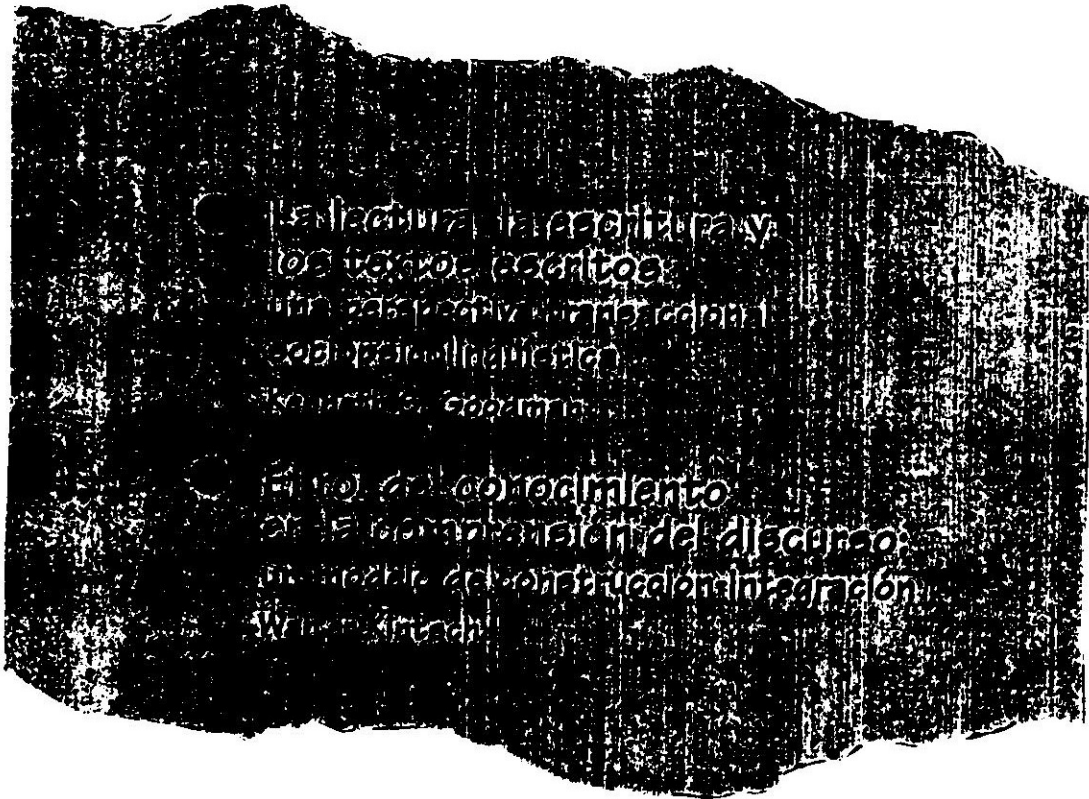 La lectura, la escritura y
los textos escritos:
una perspectiva transaccional
sociopsicolingüística
Kenneth S. Goodman
El rol del conocimiento
en la comprensión del discurso:
un modelo de construcción integración
Walter Kintsch